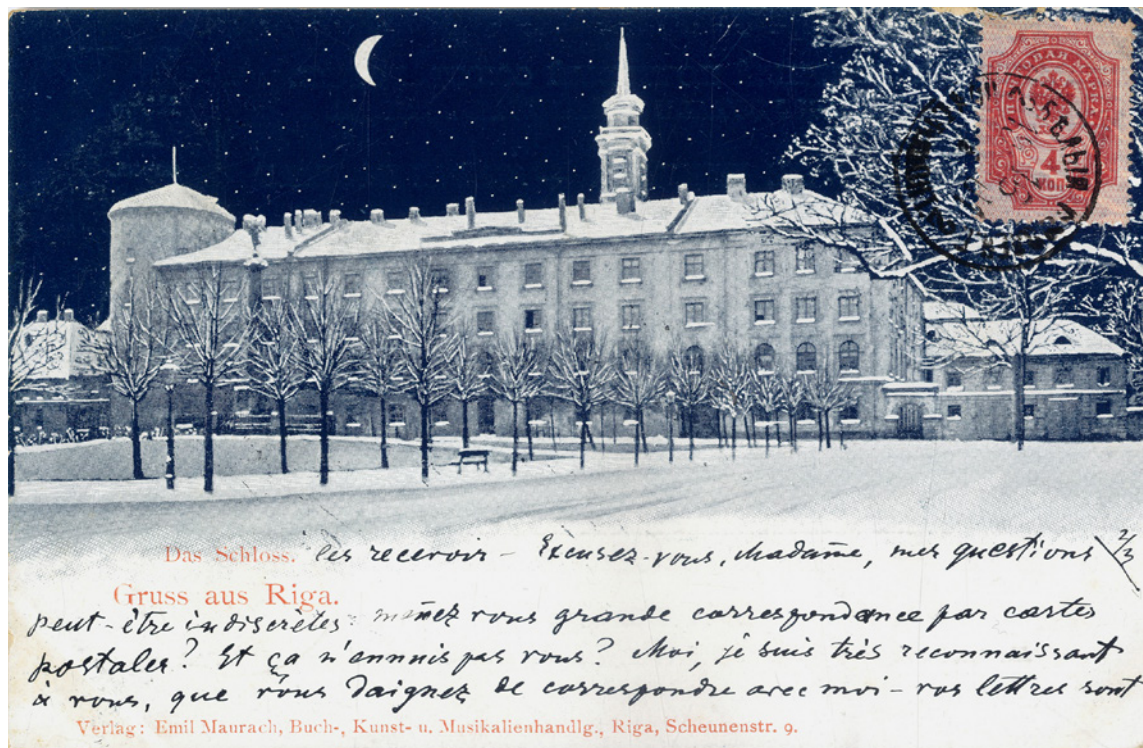 ПОЧТОВАЯ МАРКА
4
КОП.
Das Schloss. les recevoir – Excusez-vous, Madame, mes questions 2/3
Gruss aus Riga.
peut-être indiscrètes: menez vous grande correspondance par cartes
postales? Et ça n'ennuis pas vous? Moi, je suis très reconnaissant
à vous, que vous daignez de correspondre avec moi – vos lettres sont
Verlag: Emil Maurach, Buch-, Kunst- u. Musikalienhandlg., Riga, Scheunenstr. 9.